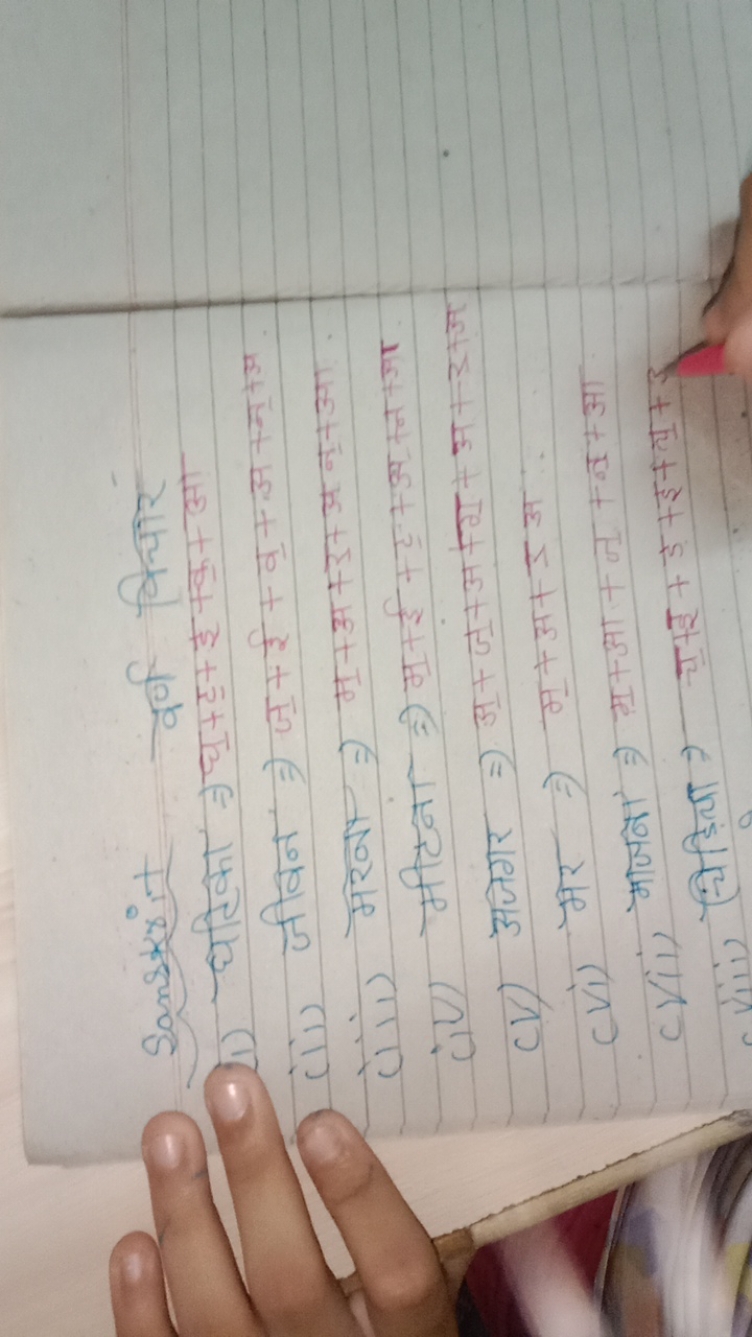 Sanskrit वर्ण विचार
i) घटिका ⇒ घ्+ट्+इ+क्+आ
(ii) जीवन ⇒ ज्+ई+व्+अ+न्+अ
(iii) मरना ⇒ म्+अ+र्+अ न्+आ
(iv) मीटना ⇒ म्+ई+ट्+अ+न+आ
(v) अजगर ⇒ अ+ज्+अ+ग्+अ+र+अ
(vi) मर ⇒ म्+अ+र अ
(vii) माजना ⇒ म्+आ+ज्+न्+आ
(viii) चिड़िया ⇒ च्+इ+ड़+इ+य्+